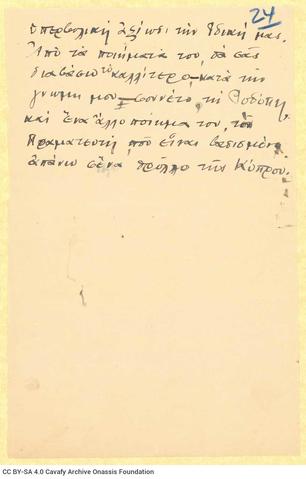 24
υπερβολική αξίωσι την ιδική μας.
Από τα ποιήματά του, θα σας
διαβάσω το καλλίτερο — κατά την
γνώμη μου — σοννέτο, τη Ροδόπη
και ένα άλλο ποίημά του, τον
Πραματευτή που είναι βασισμένο
απάνω σ' ένα θρύλλο της Κύπρου.
CC BY-SA 4.0 Cavafy Archive Onassis Foundation